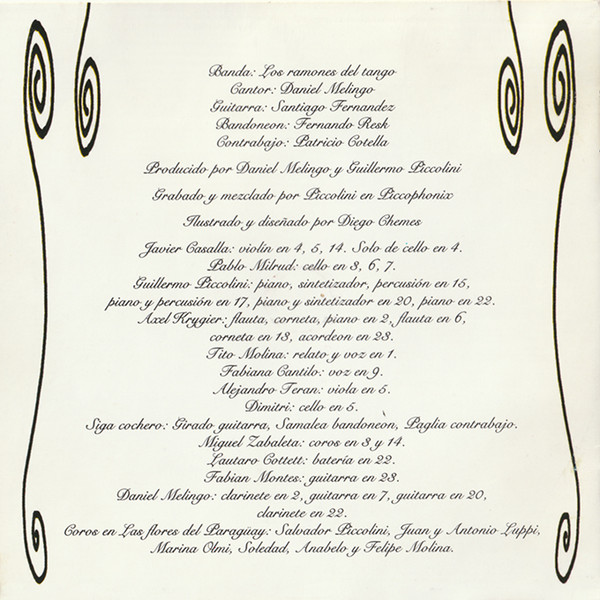 Banda: Los ramones del tango
Cantor: Daniel Melingo
Guitarra: Santiago Fernandez
Bandoneon: Fernando Resk
Contrabajo: Patricio Cotella
Producido por Daniel Melingo y Guillermo Piccolini
Grabado y mezclado por Piccolini en Piccophonix
Ilustrado y diseñado por Diego Chemes
Javier Casalla: violín en 4, 5, 14. Solo de cello en 4.
Pablo Milrud: cello en 3, 6, 7.
Guillermo Piccolini: piano, sintetizador, percusión en 15,
piano y percusión en 17, piano y sintetizador en 20, piano en 22.
Axel Krygier: flauta, corneta, piano en 2, flauta en 6,
corneta en 13, acordeon en 23.
Tito Molina: relato y voz en 1.
Fabiana Cantilo: voz en 9.
Alejandro Teran: viola en 5.
Dimitri: cello en 5.
Siga cochero: Girado guitarra, Samalea bandoneòn, Paglia contrabajo.
Miguel Zabaleta: coros en 3 y 14.
Lautaro Cottett: batería en 22.
Fabian Montes: guitarra en 23.
Daniel Melingo: clarinete en 2, guitarra en 7, guitarra en 20,
clarinete en 22.
Coros en Las flores del Paragüay: Salvador Piccolini, Juan y Antonio Luppi,
Marina Olmi, Soledad, Anabelo y Felipe Molina.